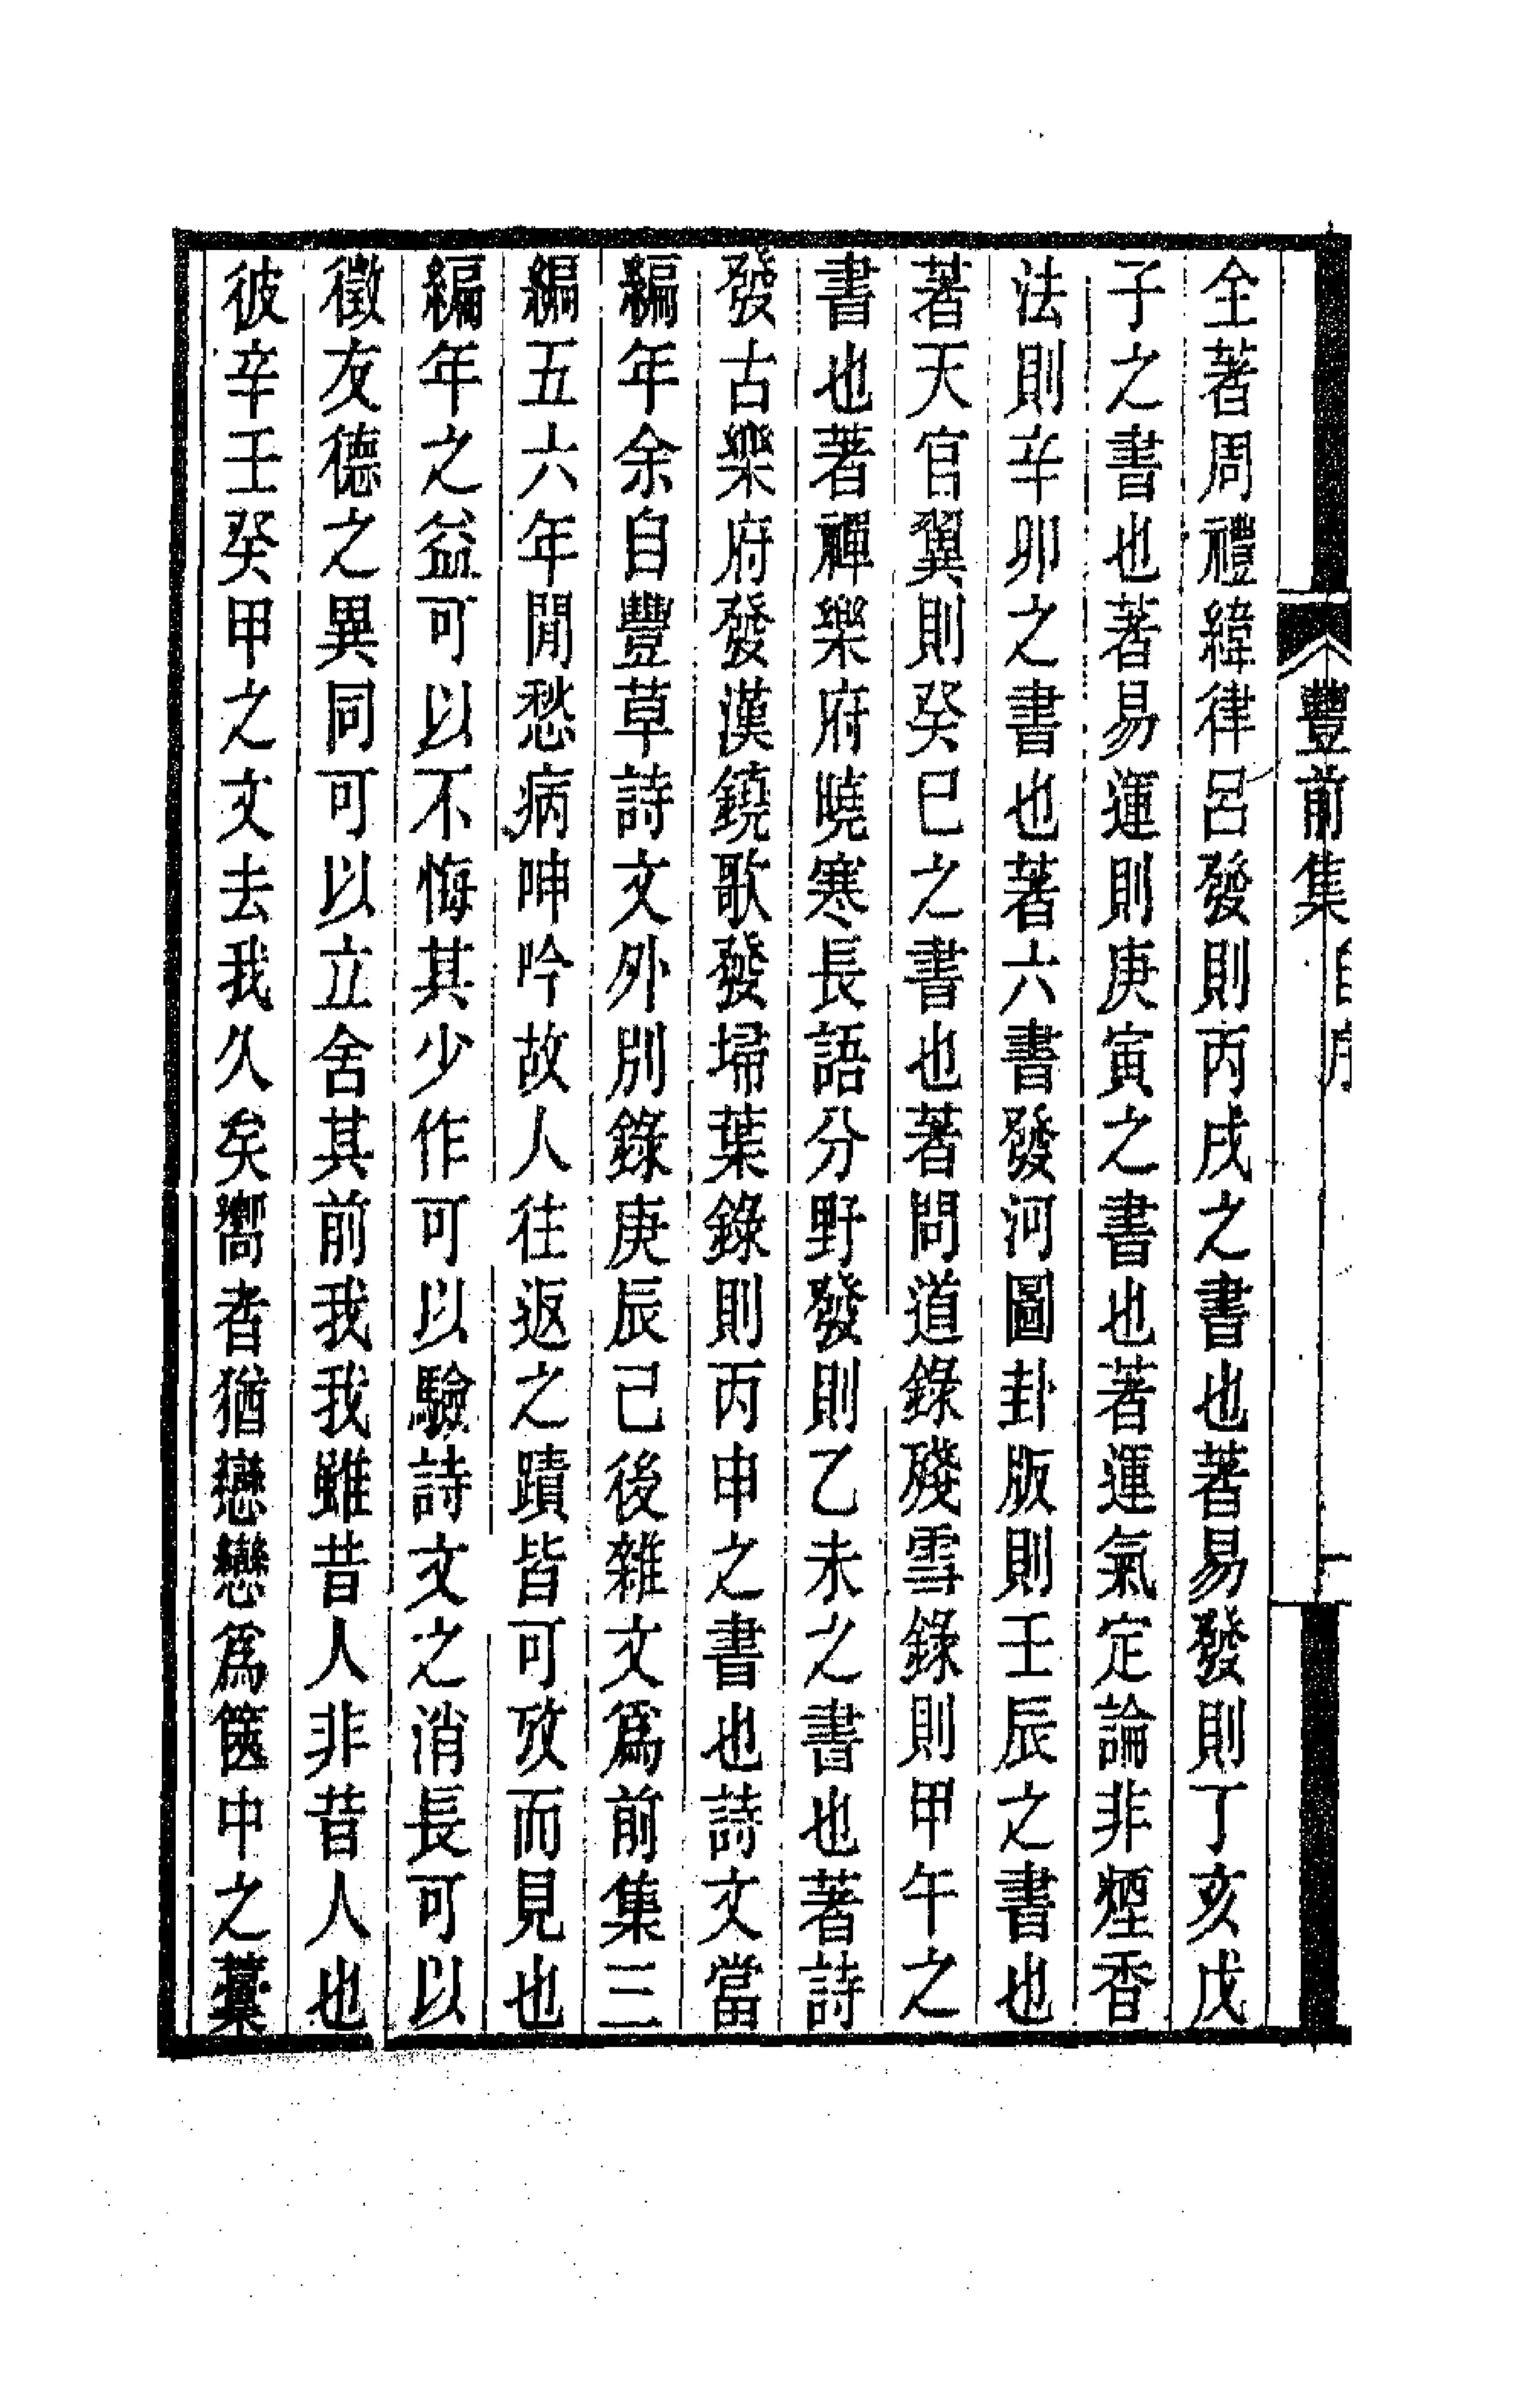 豐前集 自序 一
全著周禮緯律呂發則丙戌之書也著易發則丁亥戊
子之書也著易運則庚寅之書也著運氣定論非煙香
法則辛卯之書也著六書發河圖卦版則壬辰之書也
著天官翼則癸巳之書也著問道錄殘雪錄則甲午之
書也著禪樂府曉寒長語分野發則乙未之書也著詩
發古樂府發漢鐃歌發埽葉錄則丙申之書也詩文當
編年余自豐草詩文外別錄庚辰己後雜文爲前集三
編五六年閒愁病呻吟故人往返之蹟皆可攷而見也
編年之益可以不悔其少作可以驗詩文之消長可以
徵友德之異同可以立舍其前我我雖昔人非昔人也
彼辛壬癸甲之文去我久矣嚮者猶戀戀爲篋中之藁